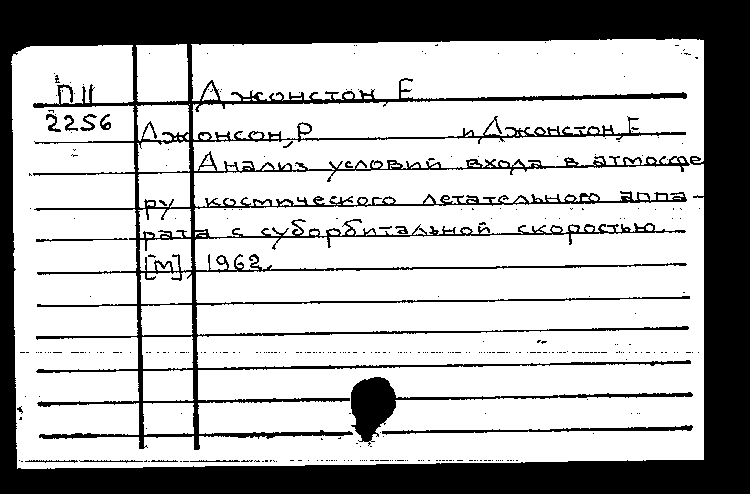 П11 Джонстон, Е
2256
Джонсон, Р и Джонстон, Е
Анализ условий входа в атмосфе
ру космического летательного аппа-
рата с суборбитальной скоростью
[М], 1962.